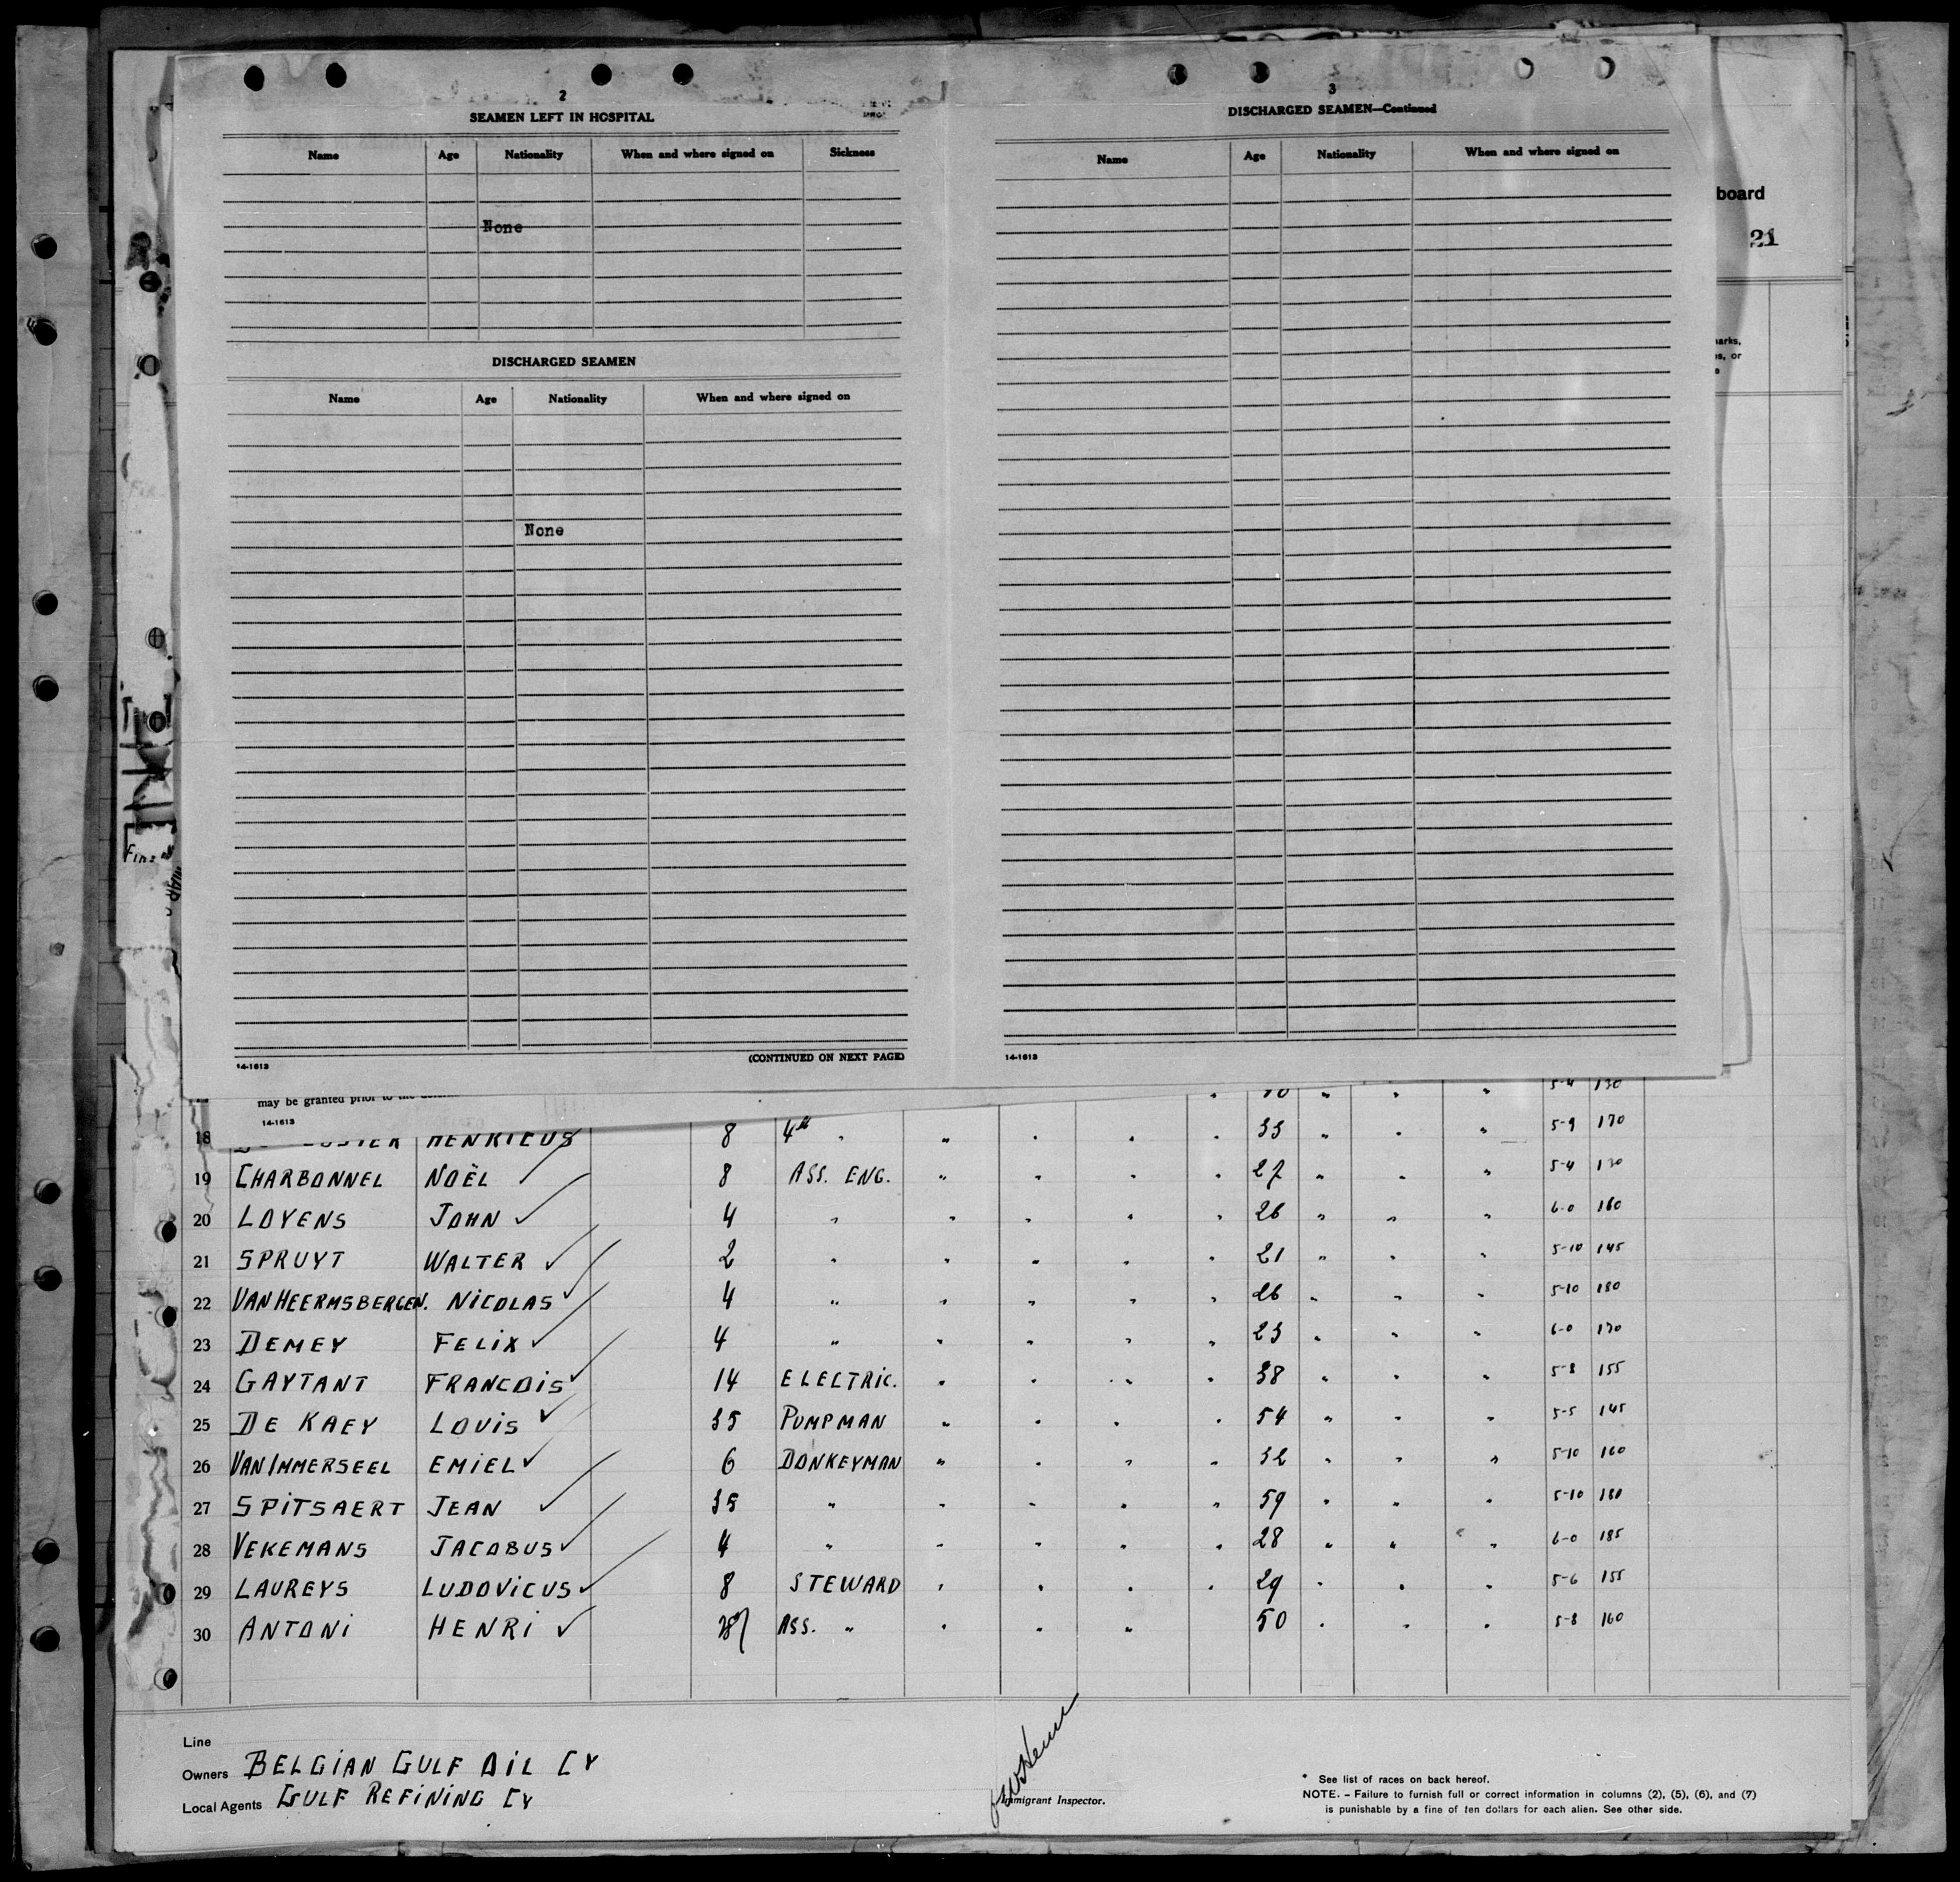 2
SEAMEN LEFT IN HOSPITAL
Name Age Nationality When and where signed on Sickness
None
DISCHARGED SEAMEN
Name Age Nationality When and where signed on
None
(CONTINUED ON NEXT PAGE)
14-1613
3
DISCHARGED SEAMEN—Continued
Name Age Nationality When and where signed on
14-1613
board
21
may be granted prior to the
14-1613
5-4 130
18 HENRICUS 8 4th " " " " " 33 " " " 5-9 170
19 CHARBONNEL NOËL 8 ASS. ENG. " " " " 27 " " " 5-4 130
20 LOYENS JOHN 4 " " " " " 26 " " " 6-0 160
21 SPRUYT WALTER 2 " " " " " 21 " " " 5-10 145
22 VAN HEERMSBERGEN. NICOLAS 4 " " " " " 26 " " " 5-10 180
23 DEMEY FELIX 4 " " " " " 23 " " " 6-0 170
24 GAYTANT FRANCOIS 14 ELECTRIC. " " " " 38 " " " 5-8 155
25 DE KAEY LOUIS 35 PUMPMAN " " " " 54 " " " 5-5 145
26 VAN IMMERSEEL EMIEL 6 DONKEYMAN " " " " 32 " " " 5-10 160
27 SPITSAERT JEAN 35 " " " " " 59 " " " 5-10 180
28 VEKEMANS JACOBUS 4 " " " " " 28 " " " 6-0 185
29 LAUREYS LUDOVICUS 8 STEWARD " " " " 29 " " " 5-6 155
30 ANTONI HENRI ASS. " " " " 50 " " " 5-8 160
Line
Owners BELGIAN GULF OIL CY
Local Agents GULF REFINING CY
Immigrant Inspector.
* See list of races on back hereof.
NOTE. – Failure to furnish full or correct information in columns (2), (5), (6), and (7)
is punishable by a fine of ten dollars for each alien. See other side.